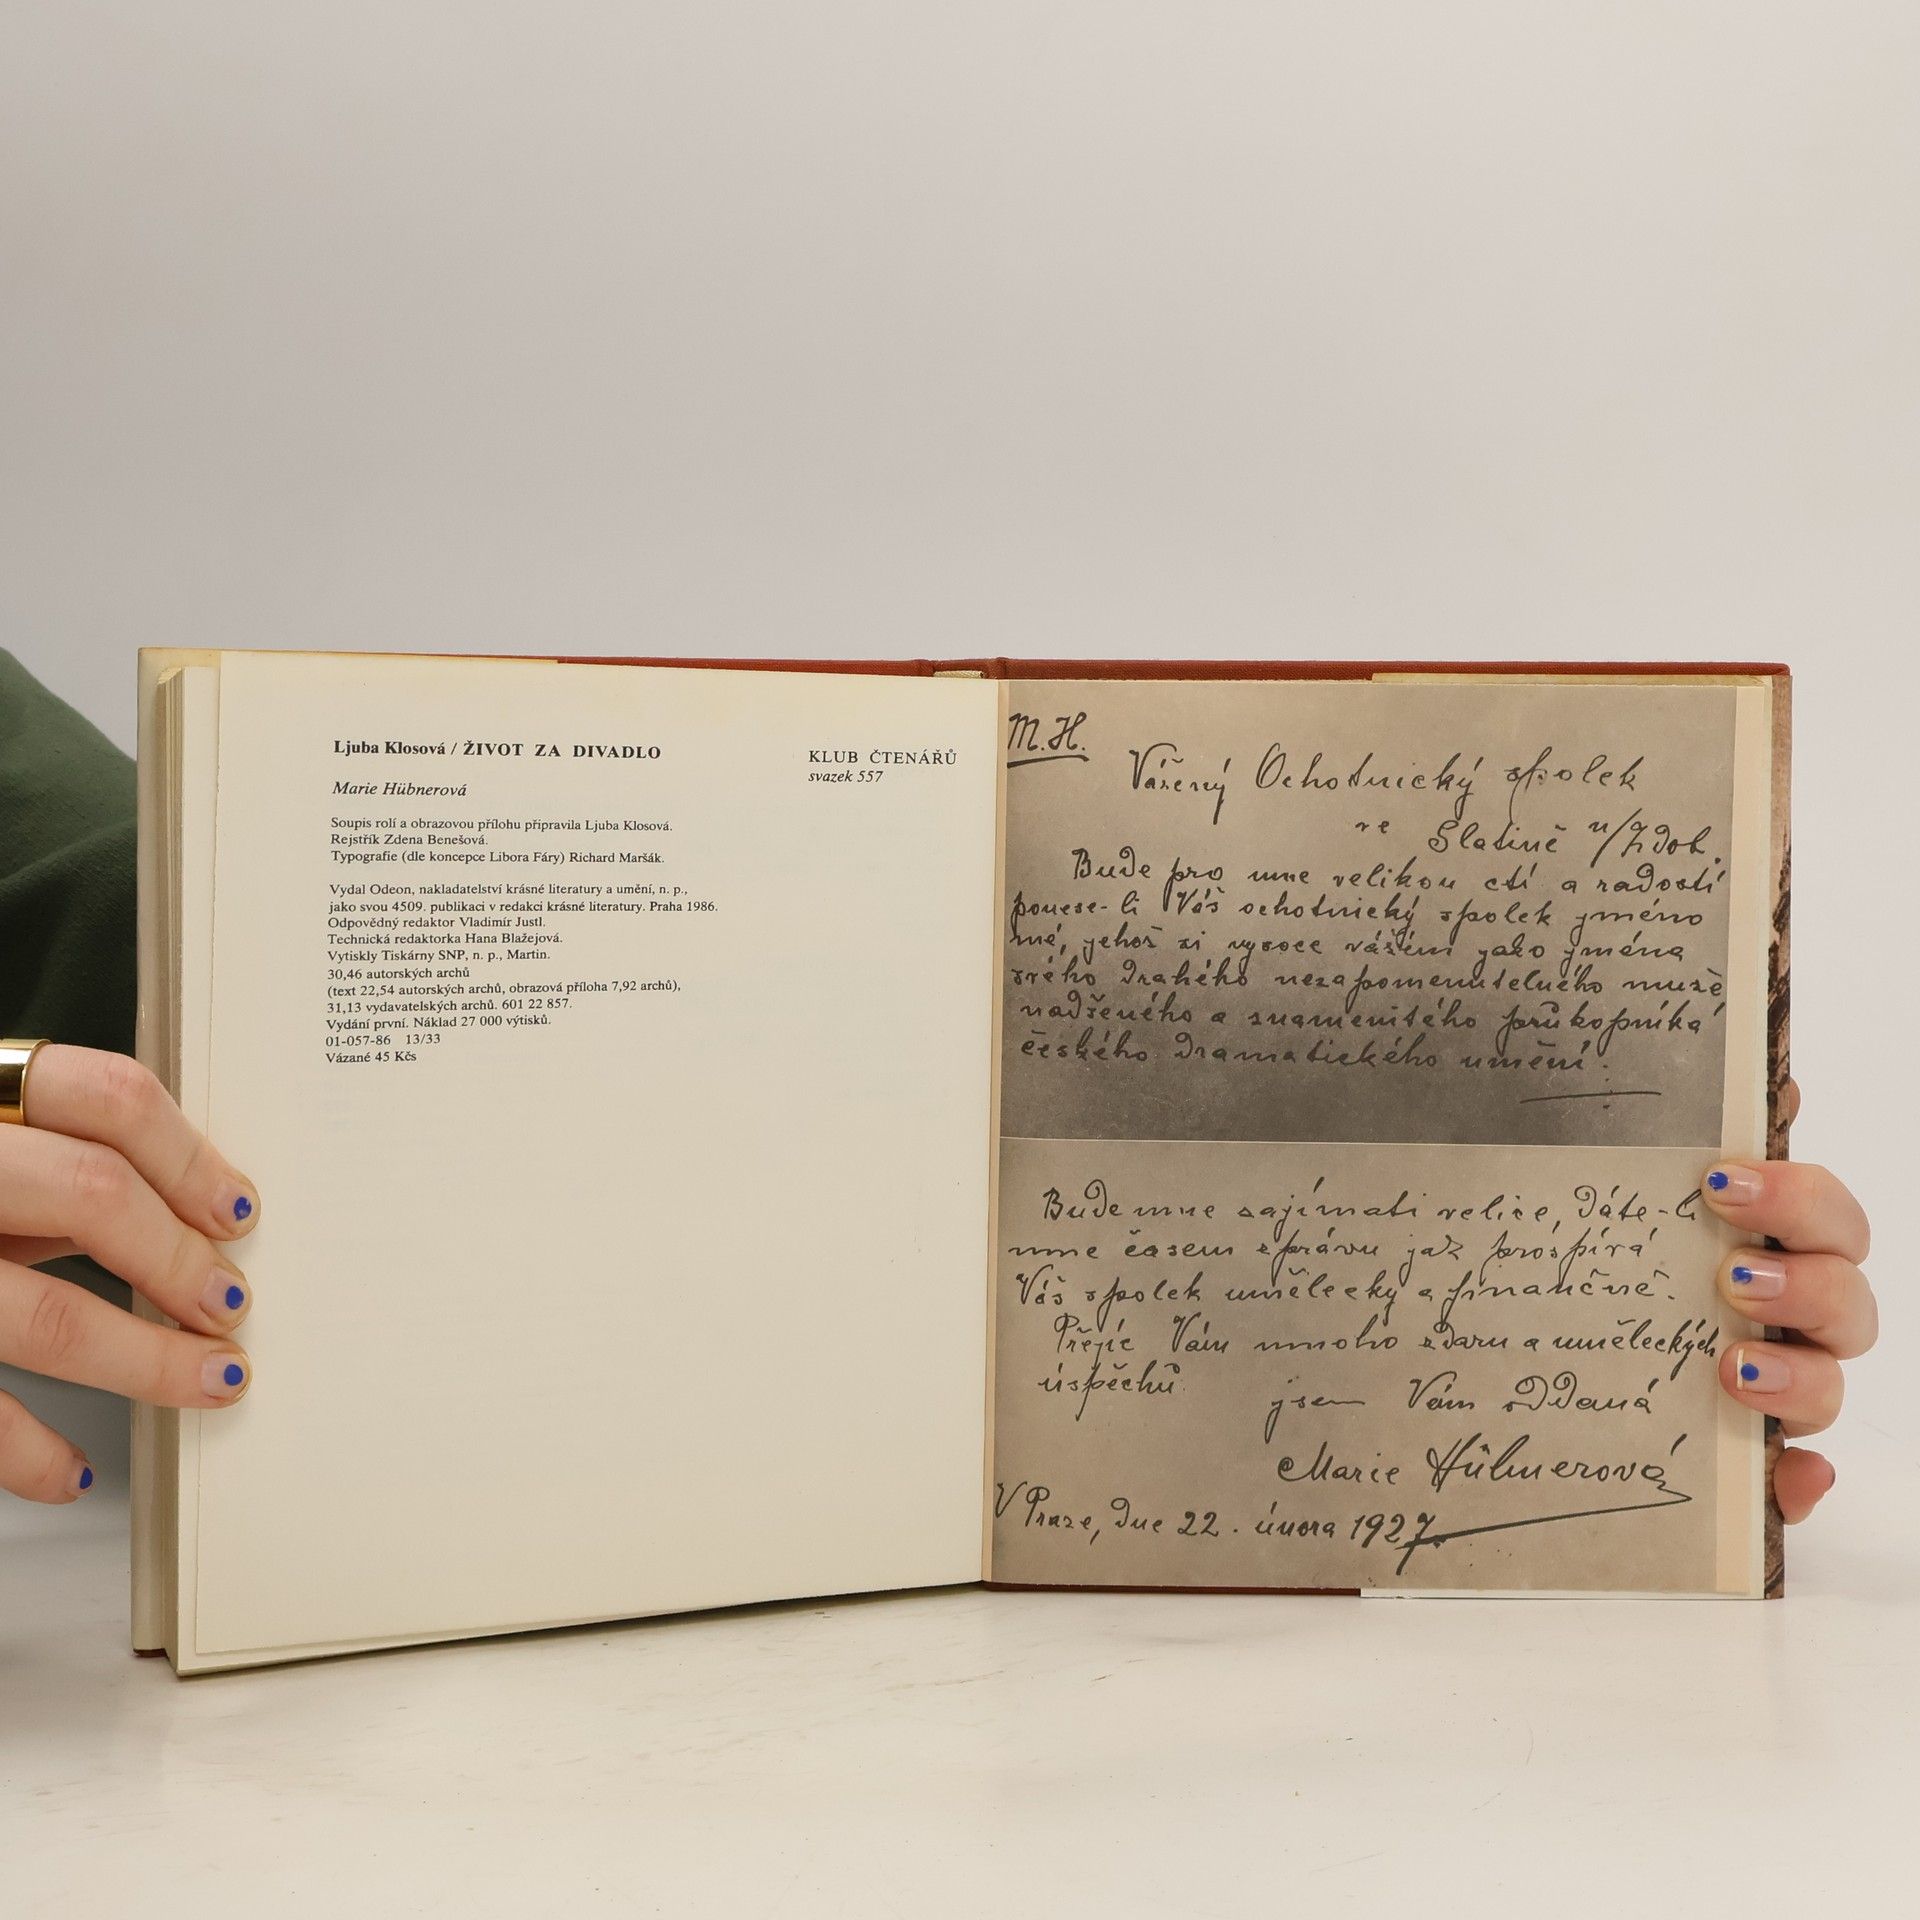 Ljuba Klosová / ŽIVOT ZA DIVADLO
Marie Hübnerová
Soupis rolí a obrazovou přílohu připravila Ljuba Klosová.
Rejstřík Zdena Benešová.
Typografie (dle koncepce Libora Fáry) Richard Maršák.
Vydal Odeon, nakladatelství krásné literatury a umění, n. p.,
jako svou 4509. publikaci v redakci krásné literatury. Praha 1986.
Odpovědný redaktor Vladimír Justl.
Technická redaktorka Hana Blažejová.
Vytiskly Tiskárny SNP, n. p., Martin.
30,46 autorských archů
(text 22,54 autorských archů, obrazová příloha 7,92 archů),
31,13 vydavatelských archů. 601 22 857.
Vydání první. Náklad 27 000 výtisků.
01-057-86 13/33
Vázané 45 Kčs
KLUB ČTENÁŘŮ
svazek 557
M. H.
Vážený Ochotnický spolek
ve Slatině n/Zdob.
Bude pro mne velikou ctí a radostí
ponese-li Váš ochotnický spolek jméno
mé, jehož si vysoce vážím jako jména
svého drahého nezapomenutelného muže
nadšeného a znamenitého průkopníka
českého dramatického umění.
Bude mne zajímati velice, dáte-li
mne časem zprávu jak prospívá
Váš spolek umělecky a finančně.
Přejíc Vám mnoho zdaru a uměleckých
úspěchů
jsem Vám oddaná
Marie Hübnerová
V Praze, dne 22. února 1927.